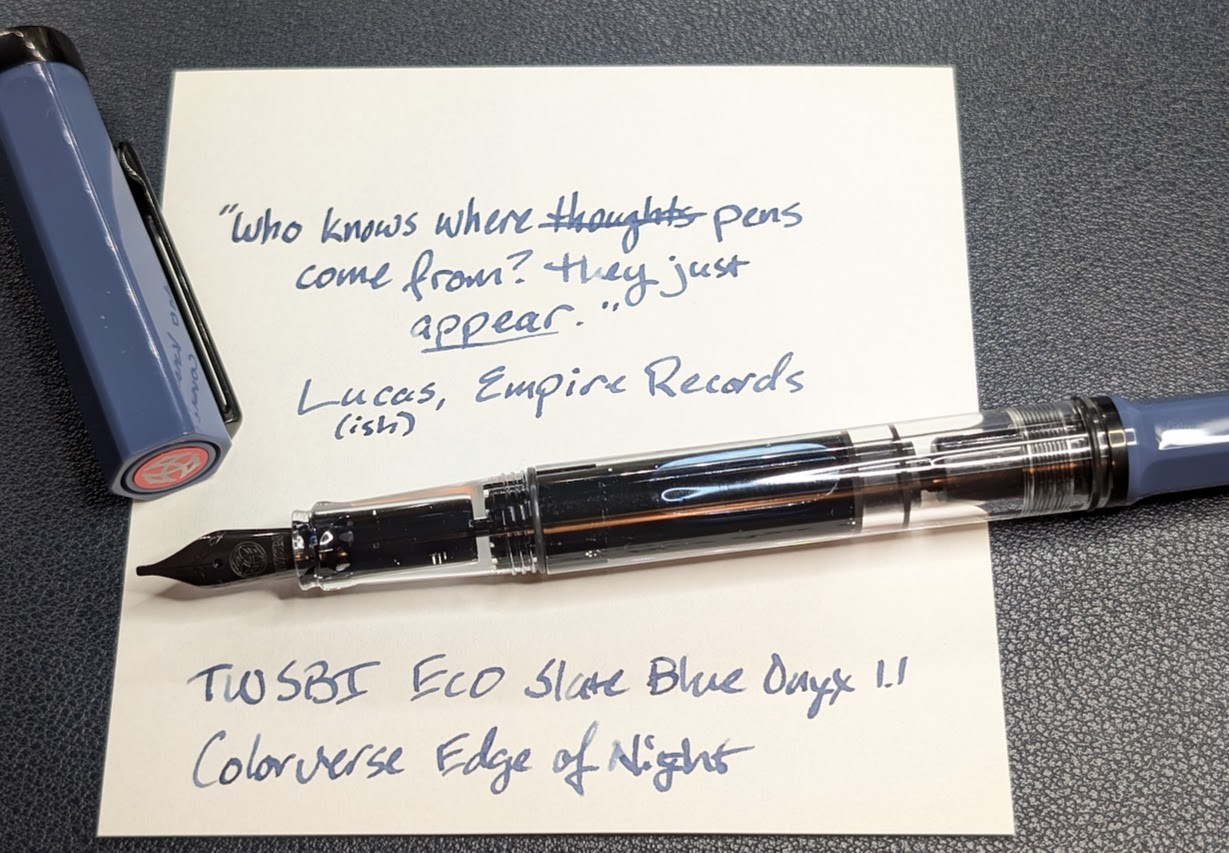 "Who knows where ~~thoughts~~ pens
come from? they just
appear."
Lucas, Empire Records
(ish)
TWSBI ECO Slate Blue Onyx 1.1
Colorverse Edge of Night